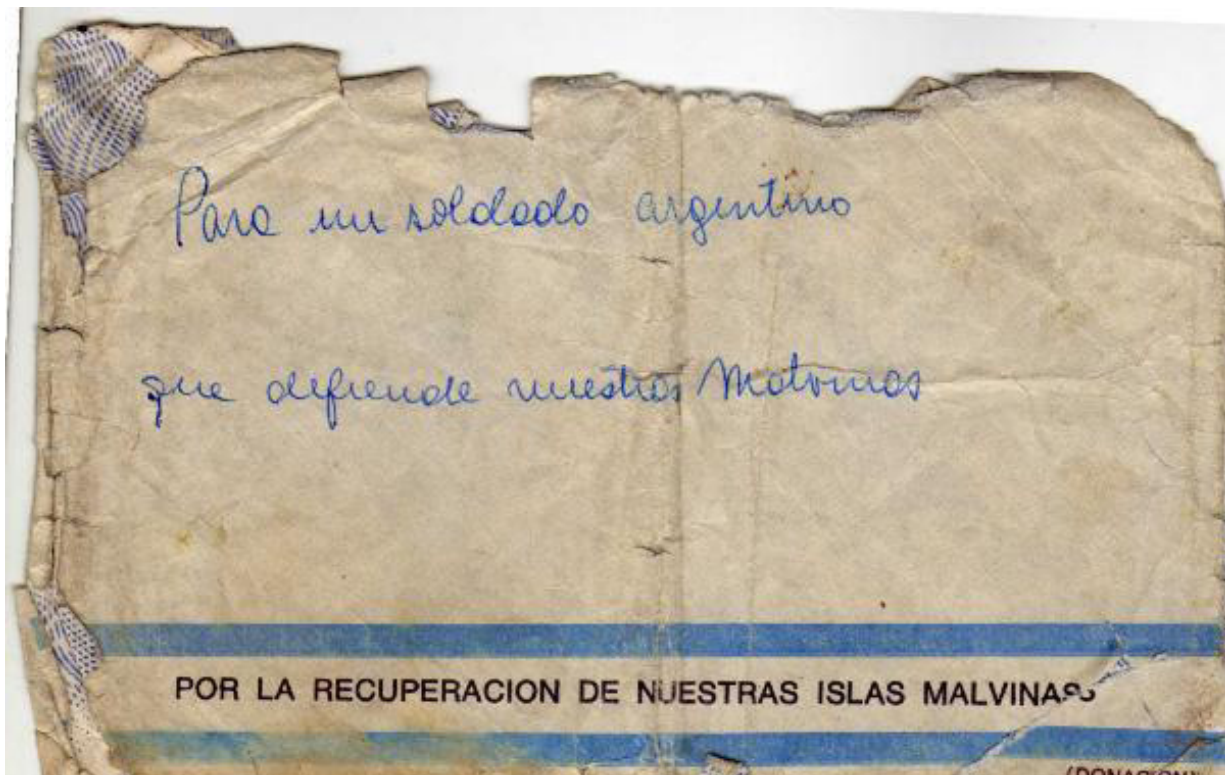 Para un soldado argentino
que defiende nuestras Malvinas
POR LA RECUPERACION DE NUESTRAS ISLAS MALVINAS